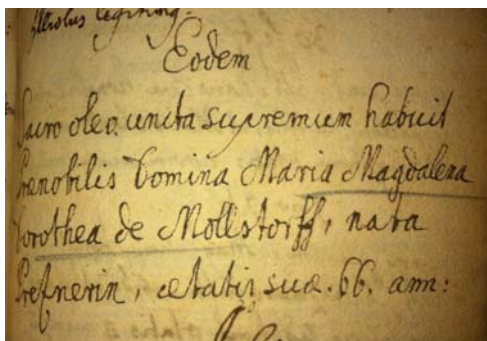 filiolus legitim9.
Eodem
Sacro oleo uncta supremum habuit
Praenobilis Domina Maria Magdalena
Dorothea de Mollstorff, nata
Prefnerin, aetatis suae. 66. ann: